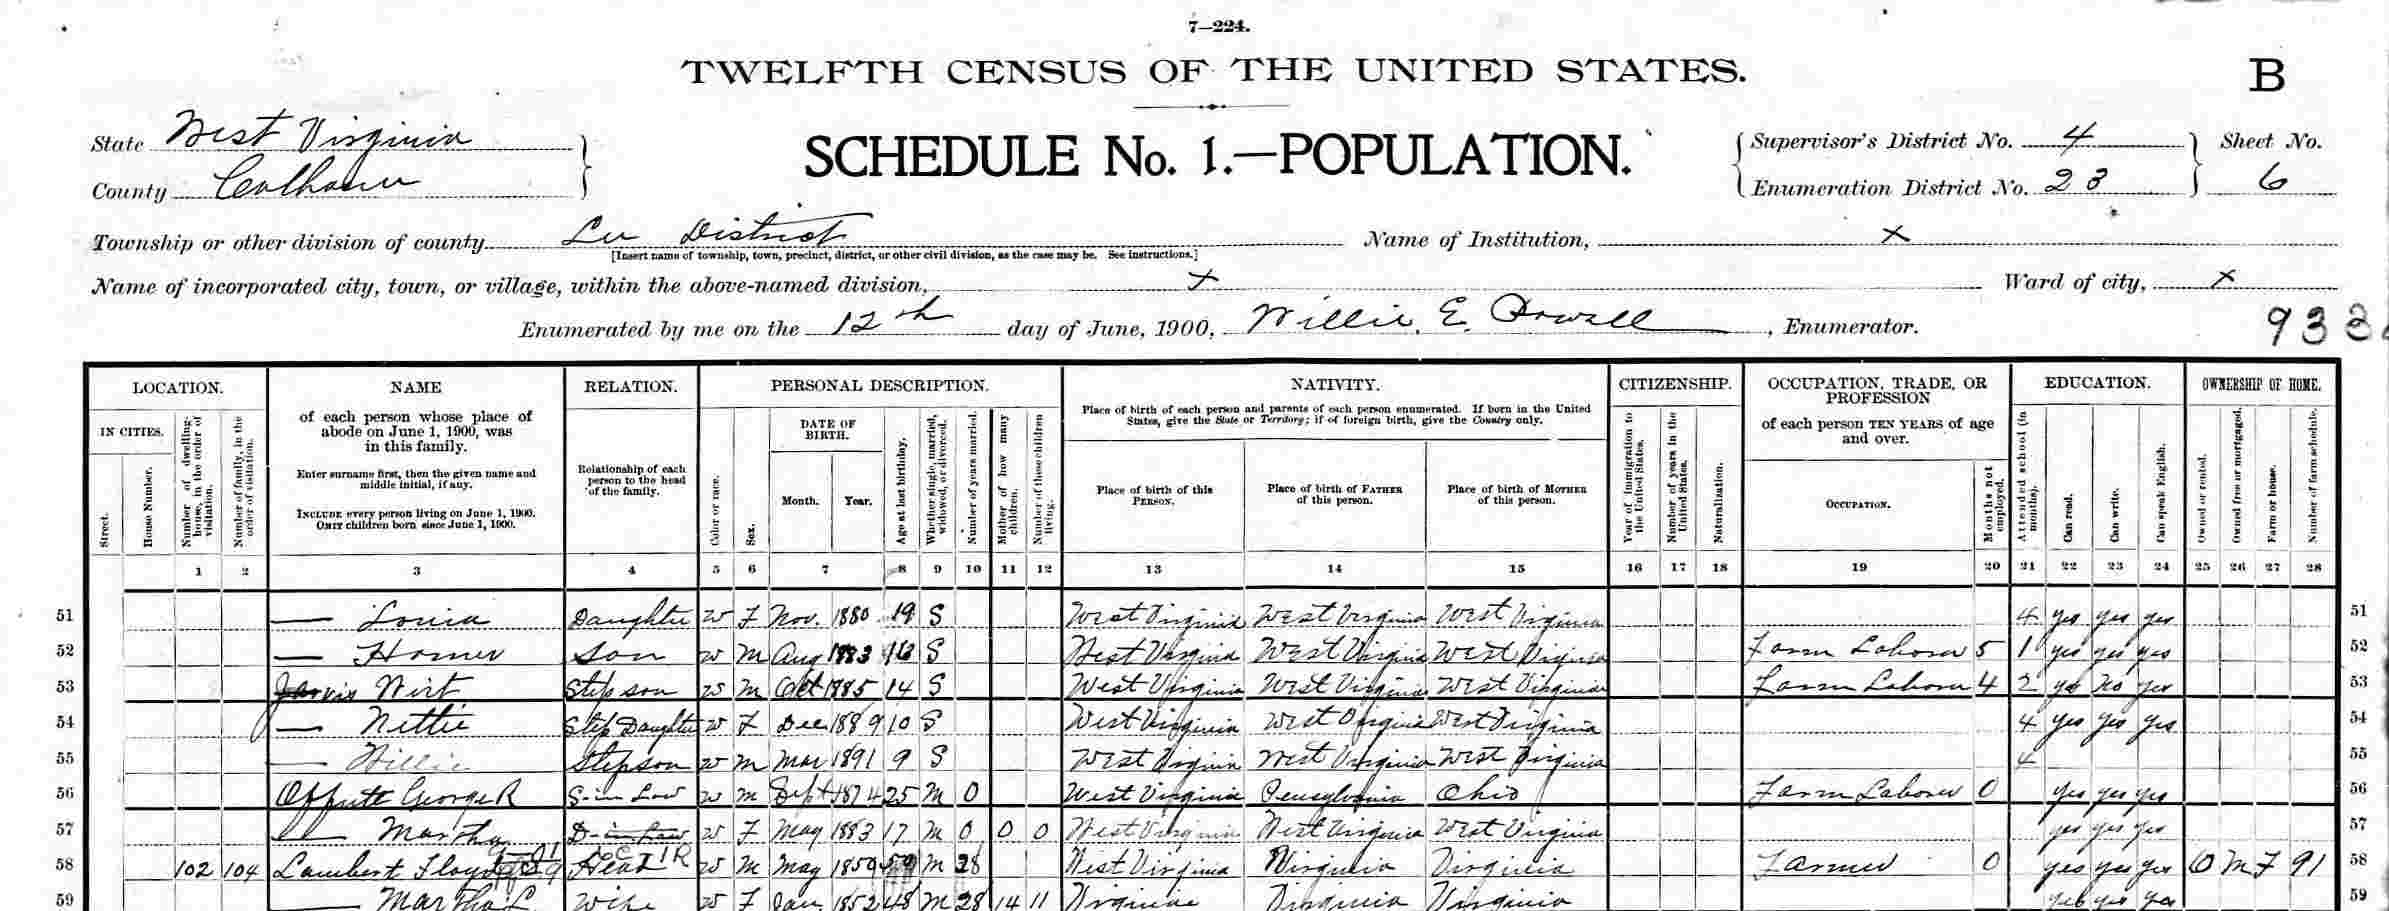 7—224.
TWELFTH CENSUS OF THE UNITED STATES.
B
State West Virginia
County Calhoun
SCHEDULE No. 1.—POPULATION.
Supervisor's District No. 4
Enumeration District No. 23
Sheet No.
6
Township or other division of county Lee District
[Insert name of township, town, precinct, district, or other civil division, as the case may be. See instructions.]
Name of Institution, x
Name of incorporated city, town, or village, within the above-named division, x
Ward of city, x
Enumerated by me on the 12th day of June, 1900, Willie E. Powell, Enumerator.
933
LOCATION. NAME RELATION. PERSONAL DESCRIPTION. NATIVITY. CITIZENSHIP. OCCUPATION, TRADE, OR PROFESSION EDUCATION. OWNERSHIP OF HOME.
IN CITIES.
Street.
House Number.
Number of dwelling-house, in the order of visitation.
Number of family, in the order of visitation.
of each person whose place of abode on June 1, 1900, was in this family.
Enter surname first, then the given name and middle initial, if any.
INCLUDE every person living on June 1, 1900.
OMIT children born since June 1, 1900.
Relationship of each person to the head of the family.
Color or race.
Sex.
DATE OF BIRTH.
Month. Year.
Age at last birthday.
Whether single, married, widowed, or divorced.
Number of years married.
Mother of how many children.
Number of these children living.
Place of birth of each person and parents of each person enumerated. If born in the United States, give the State or Territory; if of foreign birth, give the Country only.
Place of birth of this PERSON.
Place of birth of FATHER of this person.
Place of birth of MOTHER of this person.
Year of immigration to the United States.
Number of years in the United States.
Naturalization.
of each person TEN YEARS of age and over.
OCCUPATION.
Months not employed.
Attended school (in months).
Can read.
Can write.
Can speak English.
Owned or rented.
Owned free or mortgaged.
Farm or house.
Number of farm schedule.
1 2 3 4 5 6 7 8 9 10 11 12 13 14 15 16 17 18 19 20 21 22 23 24 25 26 27 28
51 — Daughter W F Nov. 1880 19 S West Virginia West Virginia West Virginia 4 yes yes yes 51
52 — Homer Son W M Aug 1883 16 S West Virginia West Virginia West Virginia Farm Laborer 5 1 yes yes yes 52
53 Jarvis Wirt Step son W M Oct 1885 14 S West Virginia West Virginia West Virginia Farm Laborer 4 2 yes No yes 53
54 — Nettie Step Daughter W F Dec 1889 10 S West Virginia West Virginia West Virginia 4 yes yes yes 54
55 — Willie Stepson W M Mar 1891 9 S West Virginia West Virginia West Virginia 4 55
56 Offutt George R S-in Law W M Sept 1874 25 M 0 West Virginia Pensylvania Ohio Farm Laborer 0 yes yes yes 56
57 — Martha D-in Law W F May 1883 17 M 0 0 0 West Virginia West Virginia West Virginia yes yes yes 57
58 102 104 Lambert Floyd Head W M May 1850 M 28 West Virginia Virginia Virginia Farmer 0 yes yes yes O M F 91 58
59 — Martha L. Wife W F Jan. 1852 48 M 28 14 11 Virginia Virginia Virginia yes yes yes 59